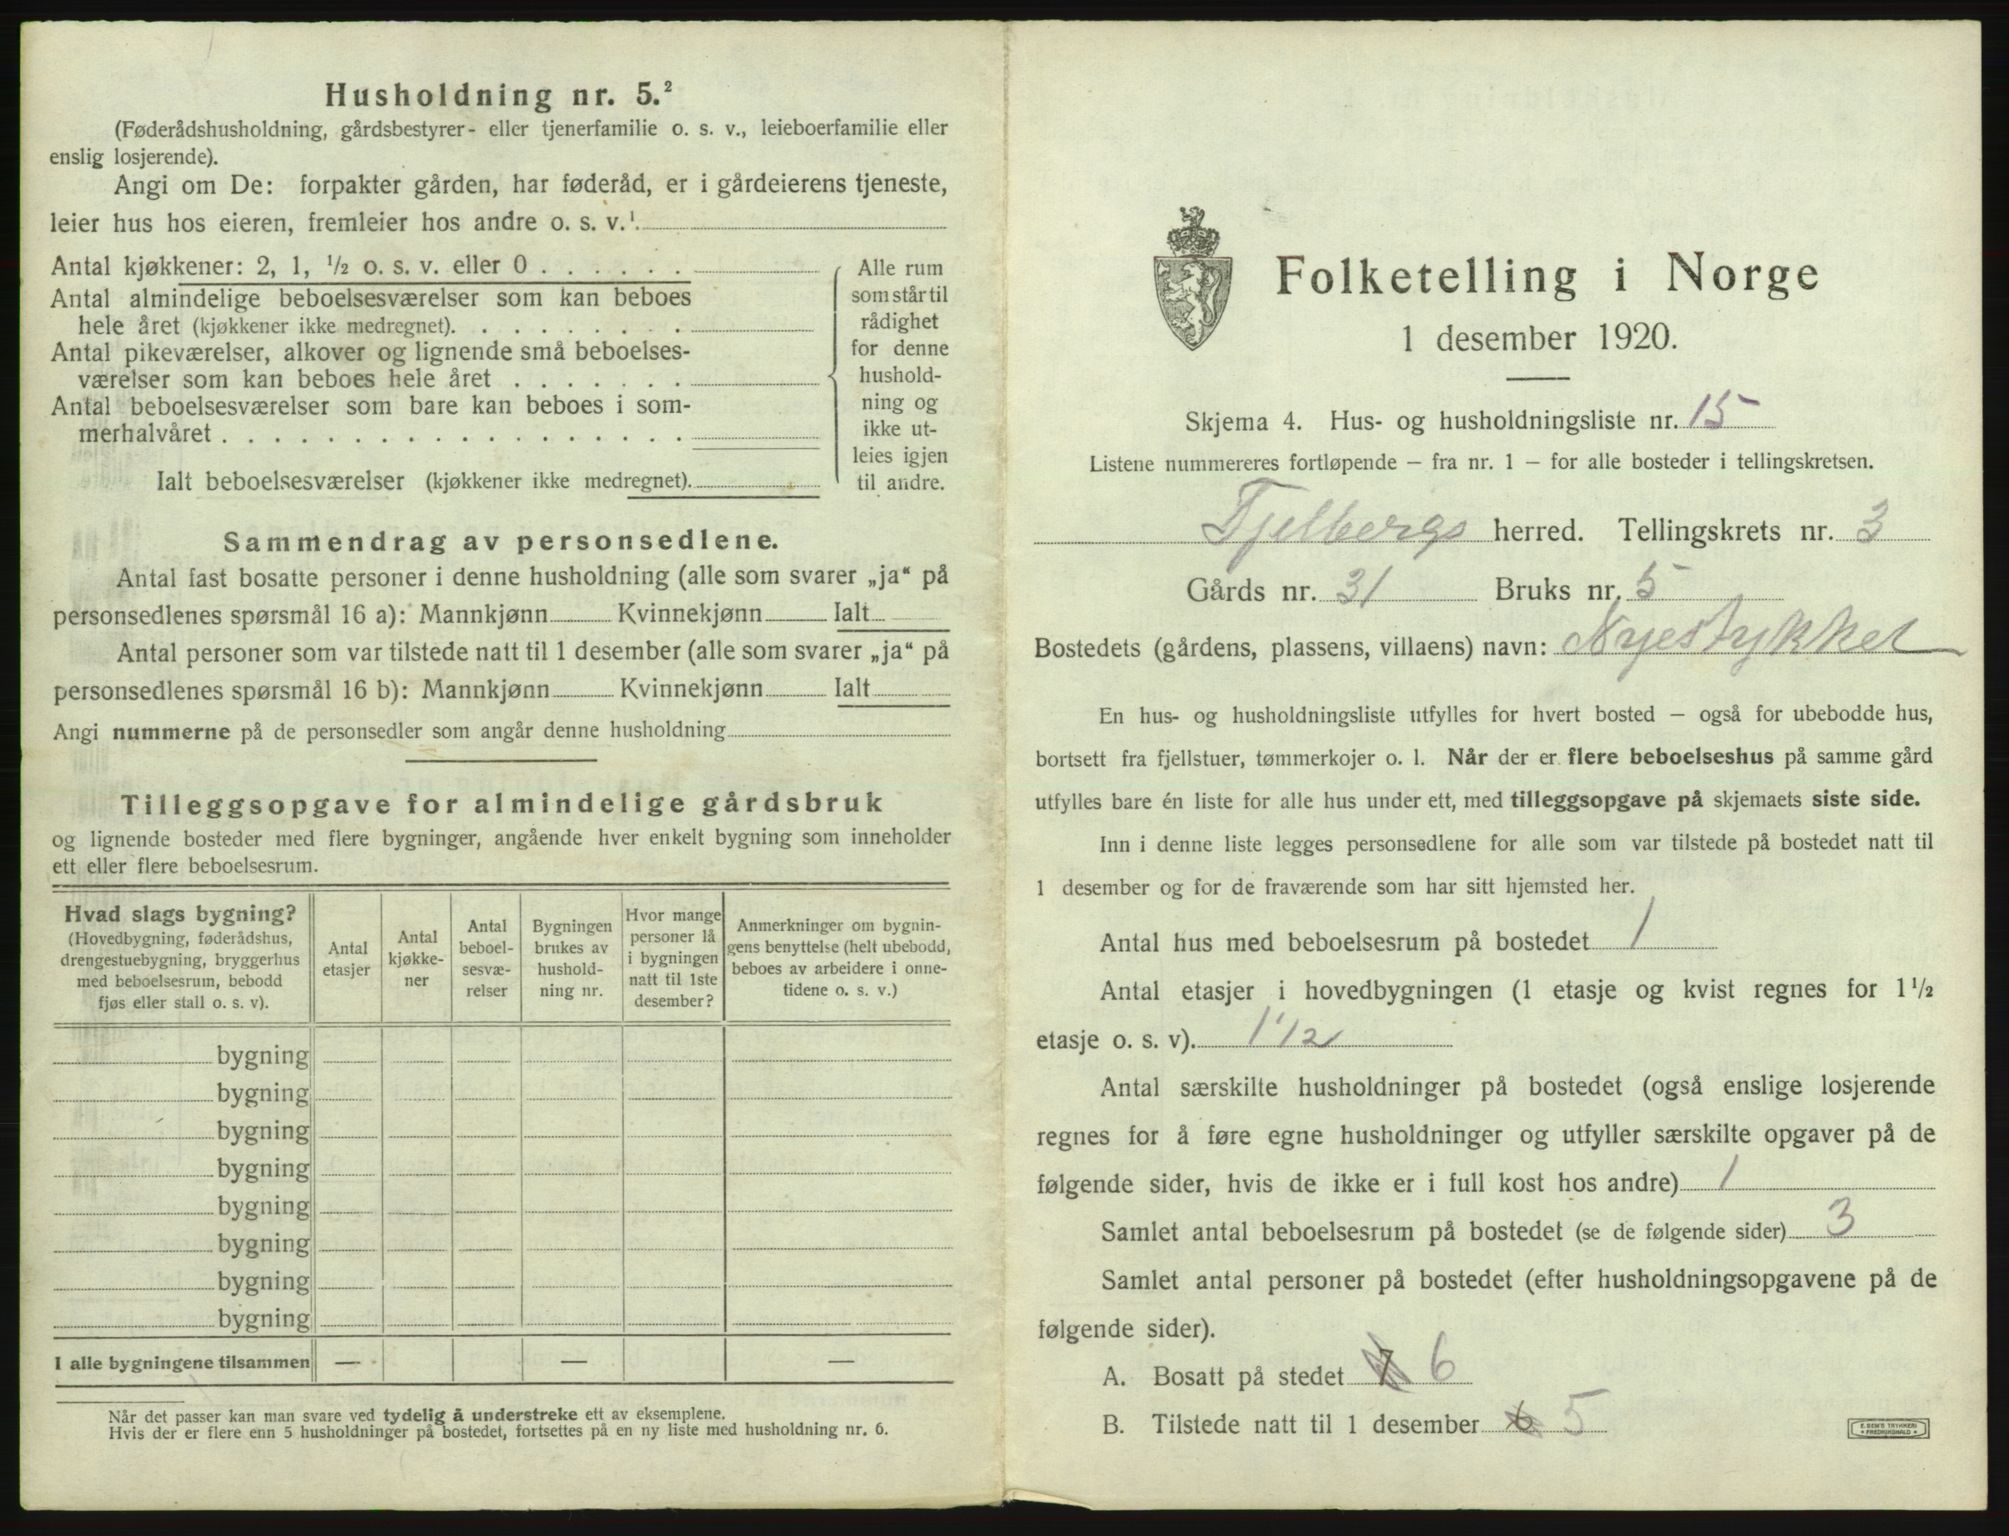 Husholdning nr. 5.²
(Føderådshusholdning, gårdsbestyrer- eller tjenerfamilie o. s. v., leieboerfamilie eller
enslig losjerende).
Angi om De: forpakter gården, har føderåd, er i gårdeierens tjeneste,
leier hus hos eieren, fremleier hos andre o. s. v.¹
Antal kjøkkener: 2, 1, ½ o. s. v. eller 0 . . . . . .
Antal almindelige beboelsesværelser som kan beboes
hele året (kjøkkener ikke medregnet). . . . . . . . .
Antal pikeværelser, alkover og lignende små beboelses-
værelser som kan beboes hele året . . . . . . .
Antal beboelsesværelser som bare kan beboes i som-
merhalvåret . . . . . . . . . . . . . . . . . .
Ialt beboelsesværelser (kjøkkener ikke medregnet).
Alle rum
som står til
rådighet
for denne
hushold-
ning og
ikke ut-
leies igjen
til andre.
Sammendrag av personsedlene.
Antal fast bosatte personer i denne husholdning (alle som svarer „ja“ på
personsedlenes spørsmål 16 a): Mannkjønn Kvinnekjønn Ialt
Antal personer som var tilstede natt til 1 desember (alle som svarer „ja“ på
personsedlenes spørsmål 16 b): Mannkjønn Kvinnekjønn Ialt
Angi nummerne på de personsedler som angår denne husholdning
Tilleggsopgave for almindelige gårdsbruk
og lignende bosteder med flere bygninger, angående hver enkelt bygning som inneholder
ett eller flere beboelsesrum.
Hvad slags bygning?
(Hovedbygning, føderådshus,
drengestuebygning, bryggerhus
med beboelsesrum, bebodd
fjøs eller stall o. s. v).
Antal
etasjer
Antal
kjøkke-
ner
Antal
beboel-
sesvæ-
relser
Bygningen
brukes av
hushold-
ning nr.
Hvor mange
personer lå
i bygningen
natt til 1ste
desember?
Anmerkninger om bygnin-
gens benyttelse (helt ubebodd,
beboes av arbeidere i onne-
tidene o. s. v.)
bygning
bygning
bygning
bygning
bygning
bygning
bygning
bygning
I alle bygningene tilsammen — — —
Når det passer kan man svare ved tydelig å understreke ett av eksemplene.
Hvis der er flere enn 5 husholdninger på bostedet, fortsettes på en ny liste med husholdning nr. 6.
Folketelling i Norge
1 desember 1920.
Skjema 4. Hus- og husholdningsliste nr. 15
Listene nummereres fortløpende – fra nr. 1 – for alle bosteder i tellingskretsen.
Fjelbergs herred. Tellingskrets nr. 3
Gårds nr. 31 Bruks nr. 5
Bostedets (gårdens, plassens, villaens) navn: Nyestykket
En hus- og husholdningsliste utfylles for hvert bosted – også for ubebodde hus,
bortsett fra fjellstuer, tømmerkojer o. l. Når der er flere beboelseshus på samme gård
utfylles bare én liste for alle hus under ett, med tilleggsopgave på skjemaets siste side.
Inn i denne liste legges personsedlene for alle som var tilstede på bostedet natt til
1 desember og for de fraværende som har sitt hjemsted her.
Antal hus med beboelsesrum på bostedet 1
Antal etasjer i hovedbygningen (1 etasje og kvist regnes for 1½
etasje o. s. v). 1 1/2
Antal særskilte husholdninger på bostedet (også enslige losjerende
regnes for å føre egne husholdninger og utfyller særskilte opgaver på de
følgende sider, hvis de ikke er i full kost hos andre) 1
Samlet antal beboelsesrum på bostedet (se de følgende sider) 3
Samlet antal personer på bostedet (efter husholdningsopgavene på de
følgende sider).
A. Bosatt på stedet 7 6
B. Tilstede natt til 1 desember 6 5
E. SEM'S TRYKKERI
• FREDRIKSHALD •